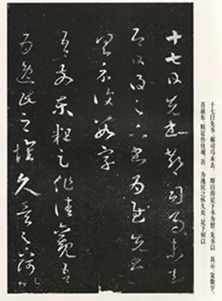 十七日先書郗司馬未去
即日得足下書為慰先書
以具示復數字
吾前東粗足作佳觀吾
為逸民之懷久矣足下何以
十七日先书,郗司马未去。即日得足下书为慰,先书以具示,复数字。
吾前东,粗足作佳观。吾为逸民之怀久矣,足下何以